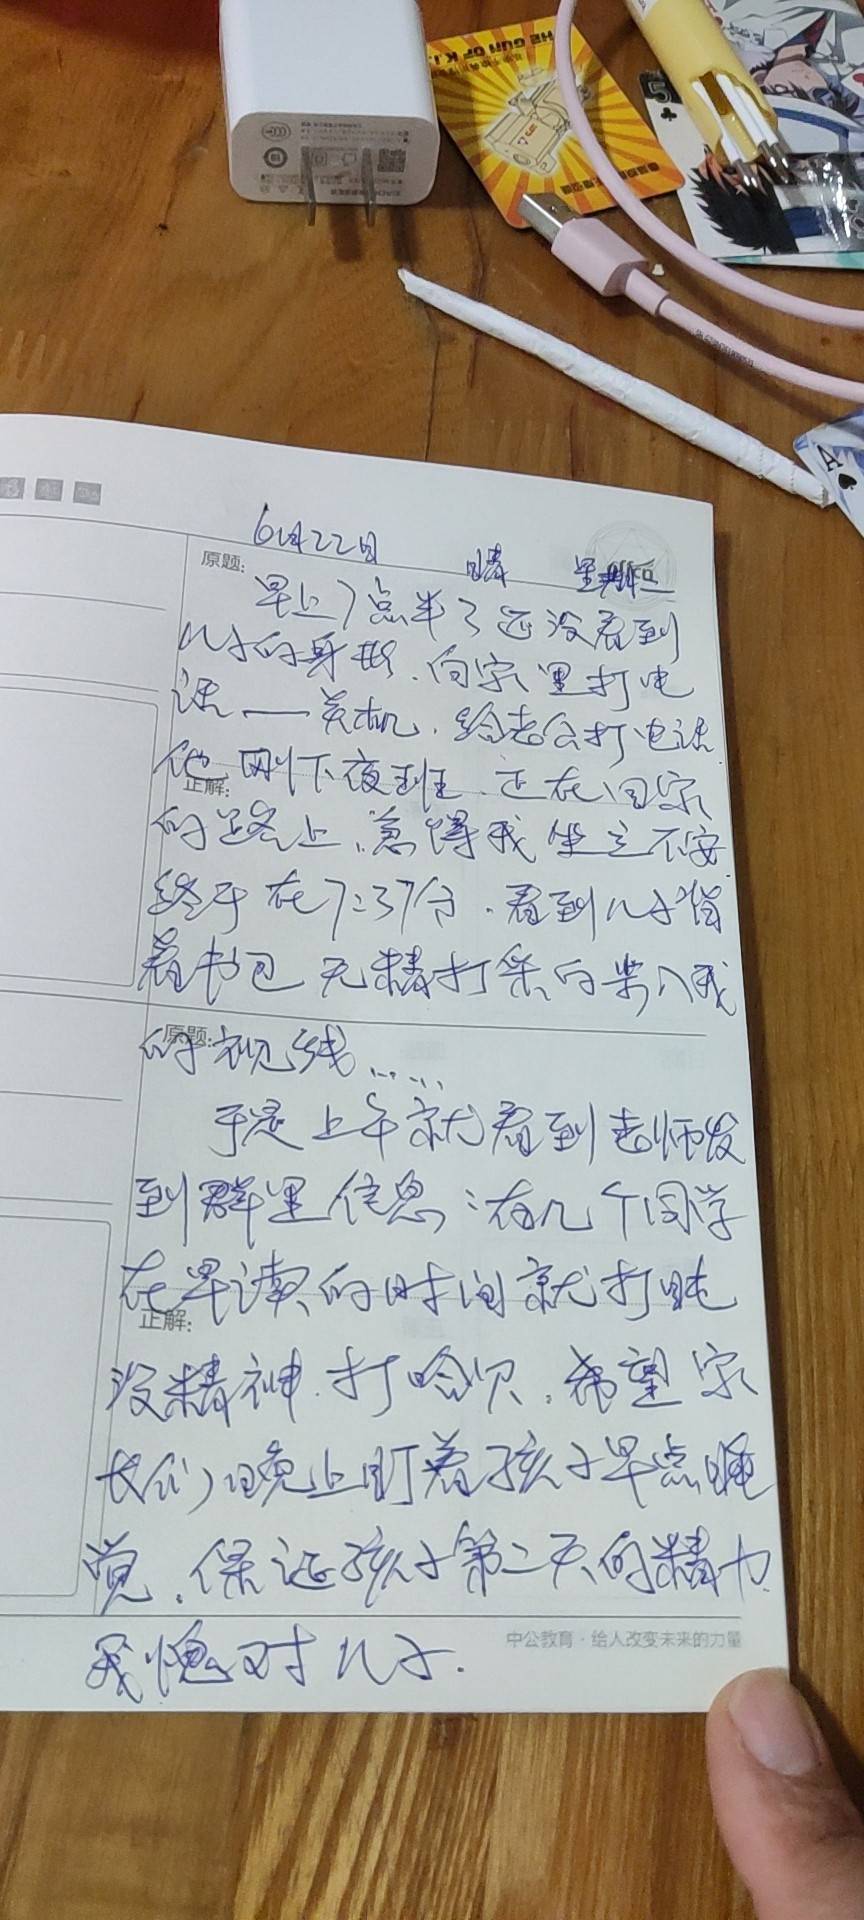 THE GUN OF K.T.
5
A
6月22日 晴 星期二
原题:
早上7点半了还没看到
儿子的身影.向家里打电
话——关机.给老公打电话.
他刚下夜班.正在回家
正解:
的路上.急得我坐立不安
终于在7:37分.看到儿子背
着书包无精打采的步入我
原题:
的视线......
于是上午就看到老师发
到群里信息:有几个同学
在早读的时间就打盹
正解:
没精神.打哈欠.希望家
长们晚上盯着孩子早点睡
觉.保证孩子第二天的精力.
我愧对儿子.
中公教育·给人改变未来的力量